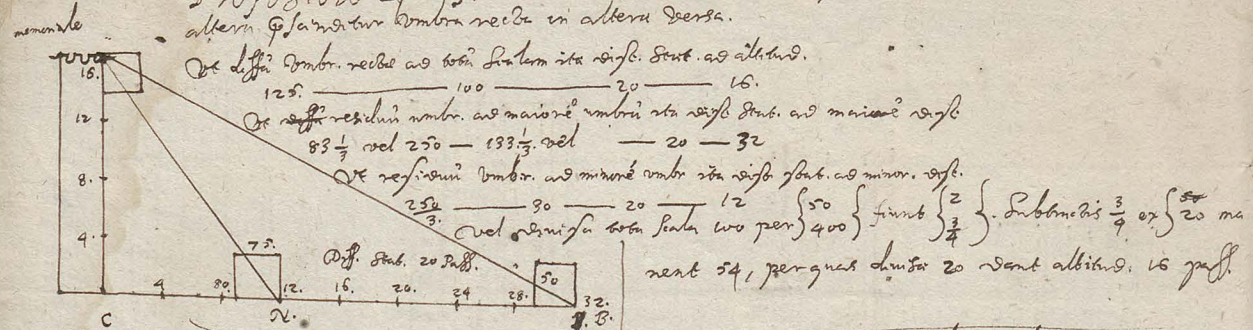 altera pscinditur umbra recta in altera versa.
memoriale
Ut diffã umbr. rectæ ad totã scalam ita dist. stat. ad altitud.
125. — 100 — 20 — 16.
Ut residuũ umbr. ad maiorẽ umbrã ita dist. stat. ad maiorẽ dist
83 1/3 vel 250 — 133 1/3. vel — 20 — 32
Ut residuũ umbr. ad minorẽ umbr ita dist stat. ad minor. dist.
250/3. — 30 — 20 — 12
Vel divisa tota scala 100 per { 50 400 } fiunt { 2 3/4 }. Subtractis 3/4 ex { 20 ma
nent 54, per quas divisa 20 dant altitud. 16 pass.
Diff. stat. 20 Pass.
16.
12
8.
4.
75.
50
4 80. 12. 16. 20. 24 28. 32.
C N. B.